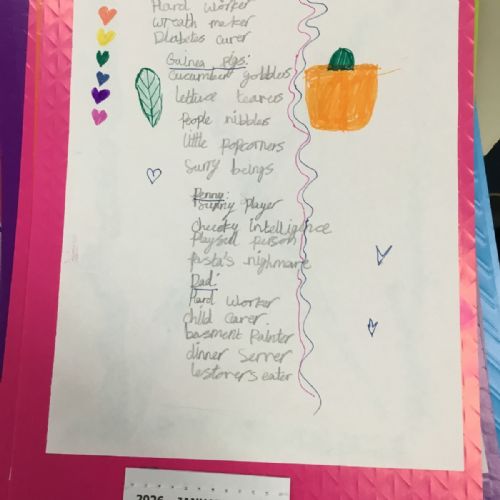 Hard Worker
Wreath maker
Diabetes curer
Guinea pigs:
Cucumber gobblers
Lettuce tearers
People nibblers
Little Popcorners
Surry beings
Penny:
player
cheeky intelligence
Playsull person
Pasta's nighmare
Dad:
Hard Worker
child Carer
basment Painter
dinner Server
lestorers eater
2026